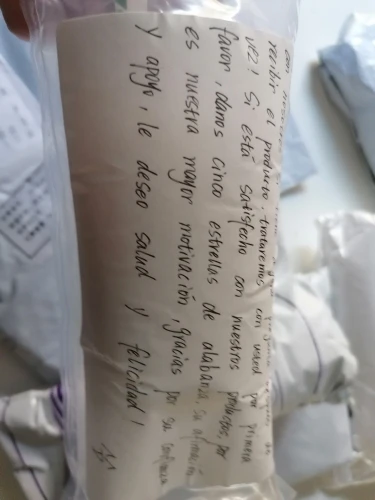 con
recibir el producto, trataremos con usted por primera
vez! Si está satisfecho con nuestros productos, por
favor, danos cinco estrellas de alabanza. su afirmación
es nuestra mayor motivación, gracias por su confianza
y apoyo, le deseo salud y felicidad!